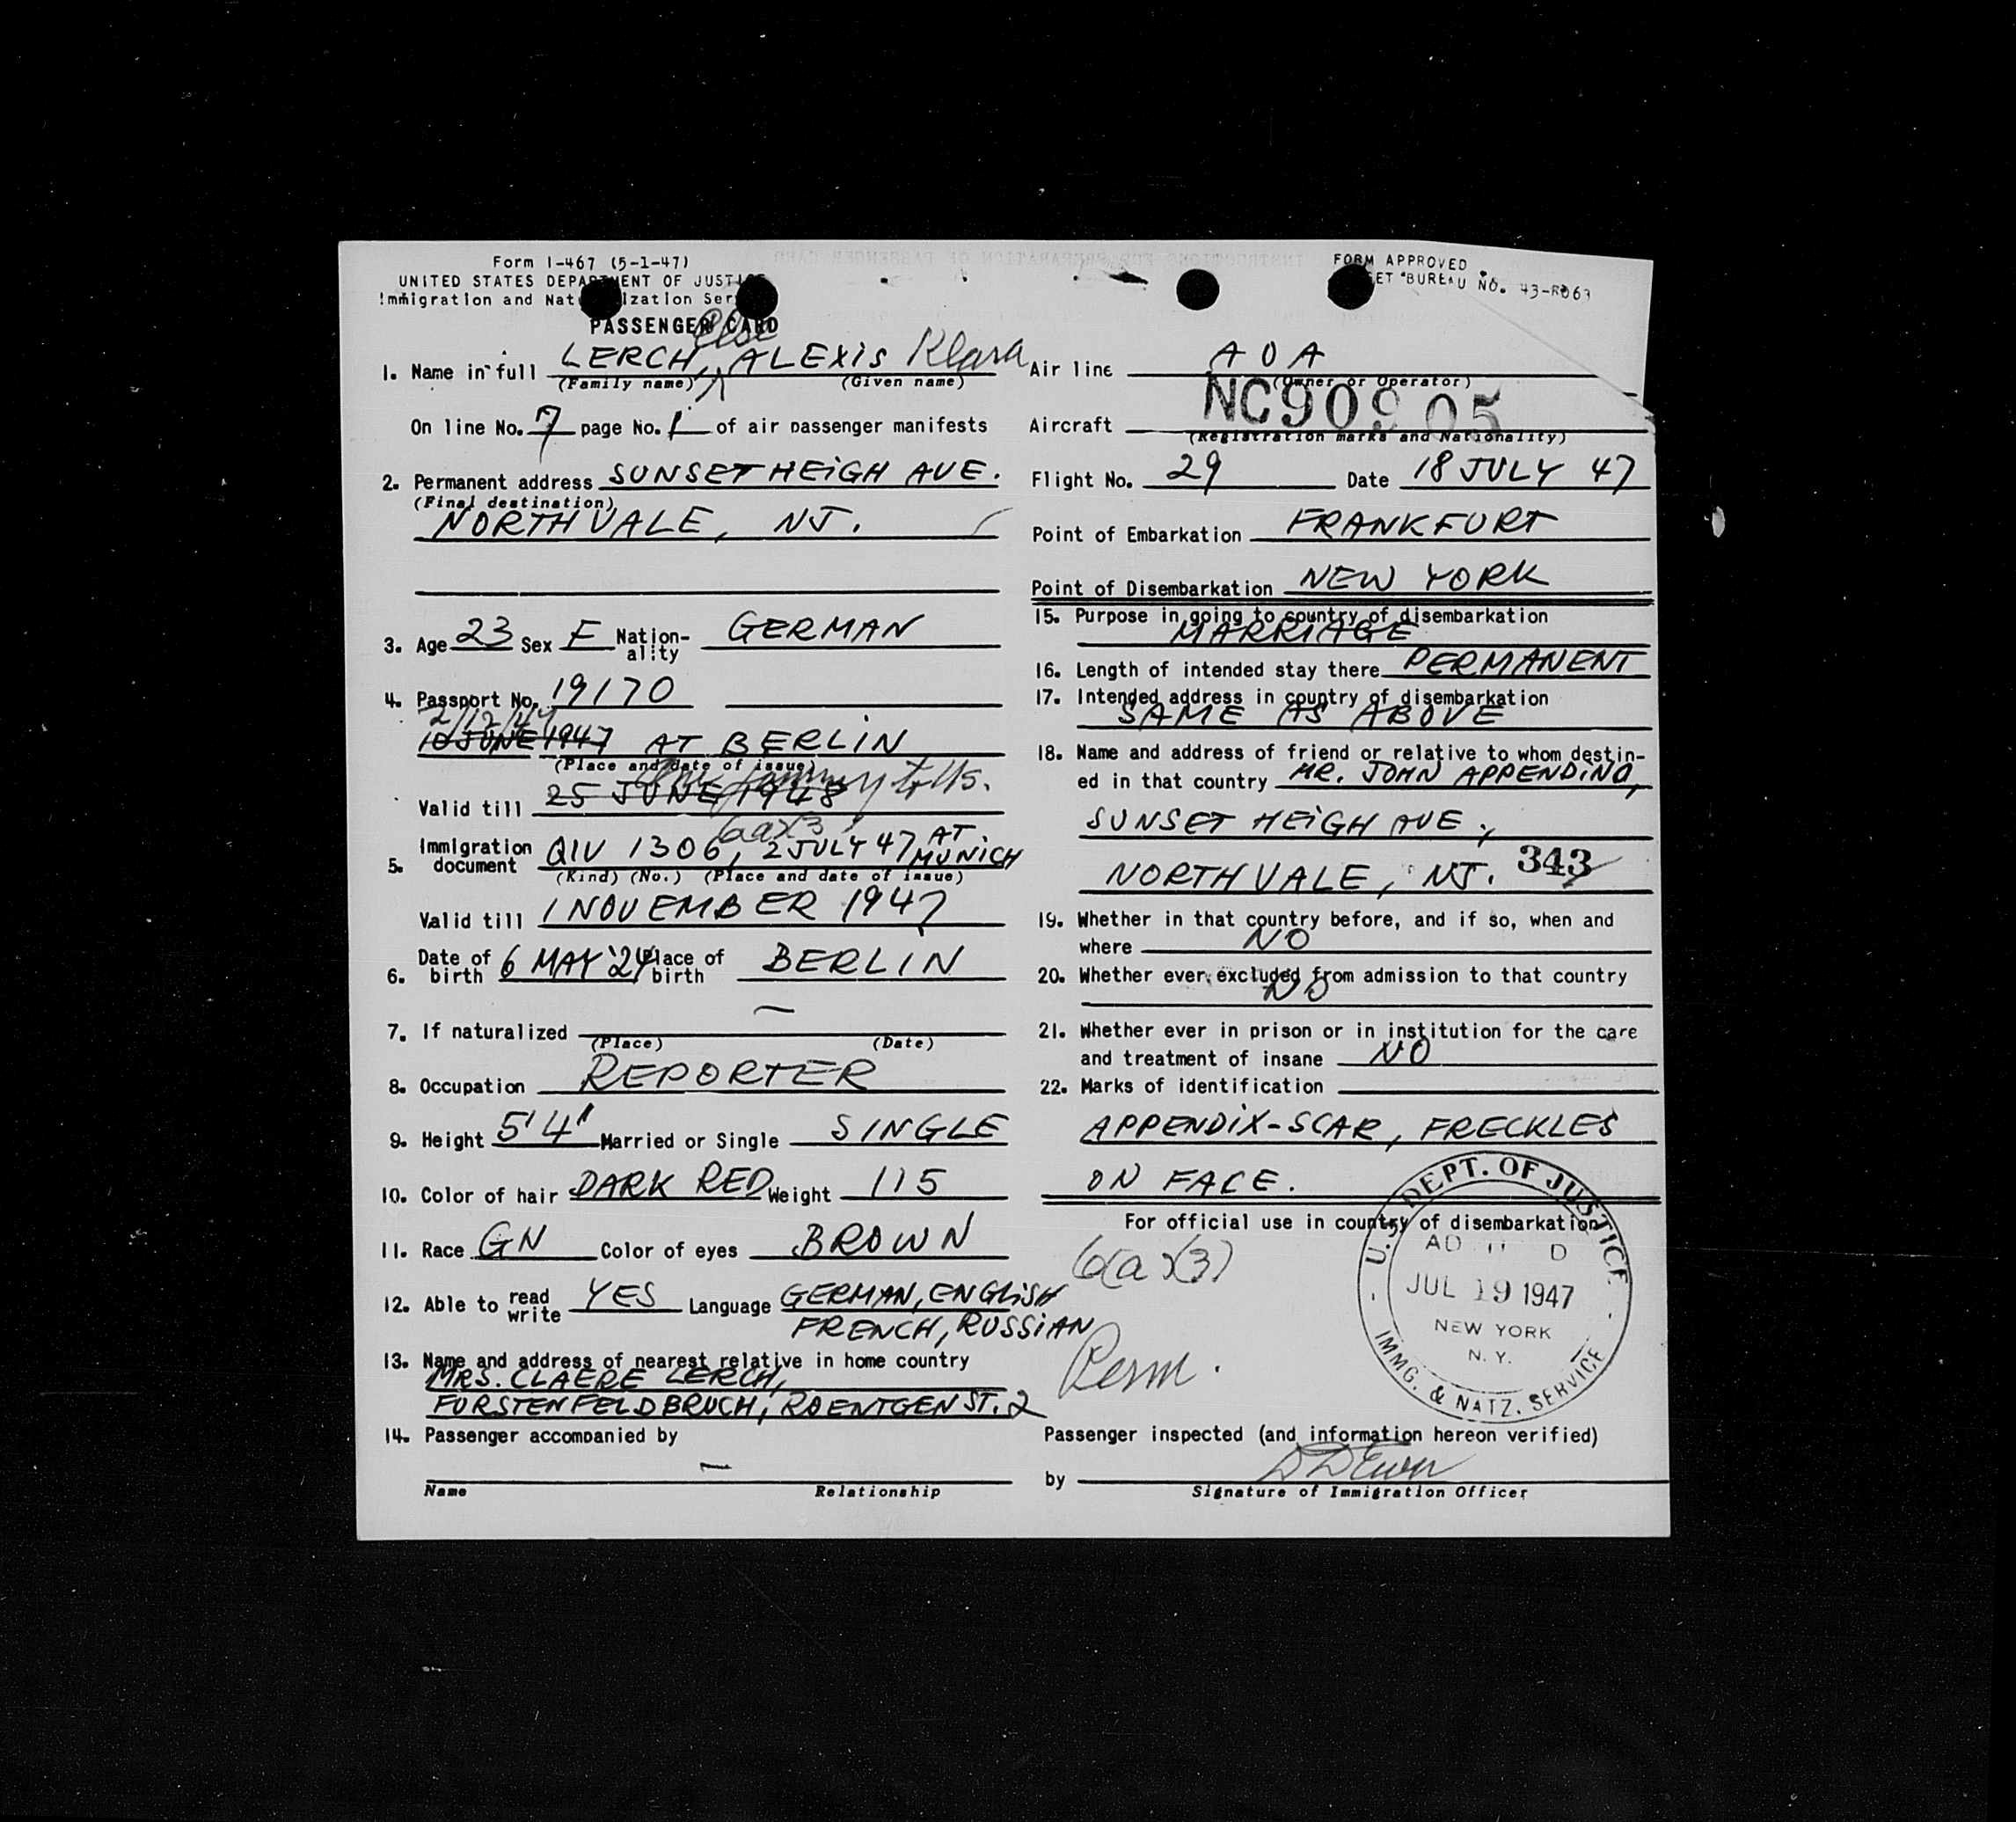 Form I-467 (5-1-47)
UNITED STATES DEPARTMENT OF JUSTICE
Immigration and Naturalization Service
PASSENGER CARD
FORM APPROVED
BUREAU NO. 43-R063
Else
1. Name in full LERCH, ALEXIS Klara
(Family name) (Given name)
On line No. 7 page No. 1 of air passenger manifests
2. Permanent address SUNSET HEIGH AVE.
(Final destination)
NORTHVALE, NJ.
3. Age 23 Sex F Nation-ality GERMAN
4. Passport No. 19170
2/12/47
10 JUNE 1947 AT BERLIN
(Place and date of issue)
25 JUNE 1948
Valid till
6a(3)
5. Immigration document QIV 1306, 2 JULY 47 AT MUNICH
(Kind) (No.) (Place and date of issue)
Valid till 1 NOVEMBER 1947
6. Date of birth 6 MAY '24 Place of birth BERLIN
7. If naturalized —
(Place) (Date)
8. Occupation REPORTER
9. Height 5'4" Married or Single SINGLE
10. Color of hair DARK RED Weight 115
11. Race GN Color of eyes BROWN
12. Able to read write YES Language GERMAN, ENGLISH
FRENCH, RUSSIAN
13. Name and address of nearest relative in home country
MRS. CLAERE LERCH,
FURSTENFELDBRUCH, ROENTGEN ST. 2
14. Passenger accompanied by
—
Name Relationship
Air line AOA
(Owner or Operator)
Aircraft NC90905
(Registration marks and Nationality)
Flight No. 29 Date 18 JULY 47
Point of Embarkation FRANKFURT
Point of Disembarkation NEW YORK
15. Purpose in going to country of disembarkation
MARRIAGE
16. Length of intended stay there PERMANENT
17. Intended address in country of disembarkation
SAME AS ABOVE
18. Name and address of friend or relative to whom destin-
ed in that country MR. JOHN APPENDINO,
SUNSET HEIGH AVE.,
NORTHVALE, NJ. 343
19. Whether in that country before, and if so, when and
where NO
20. Whether ever excluded from admission to that country
NO
21. Whether ever in prison or in institution for the care
and treatment of insane NO
22. Marks of identification
APPENDIX-SCAR, FRECKLES
ON FACE.
For official use in country of disembarkation
6(a)(3)
Perm.
U.S. DEPT. OF JUSTICE
JUL 19 1947
NEW YORK
N. Y.
IMMG. & NATZ. SERVICE
Passenger inspected (and information hereon verified)
by
Signature of Immigration Officer